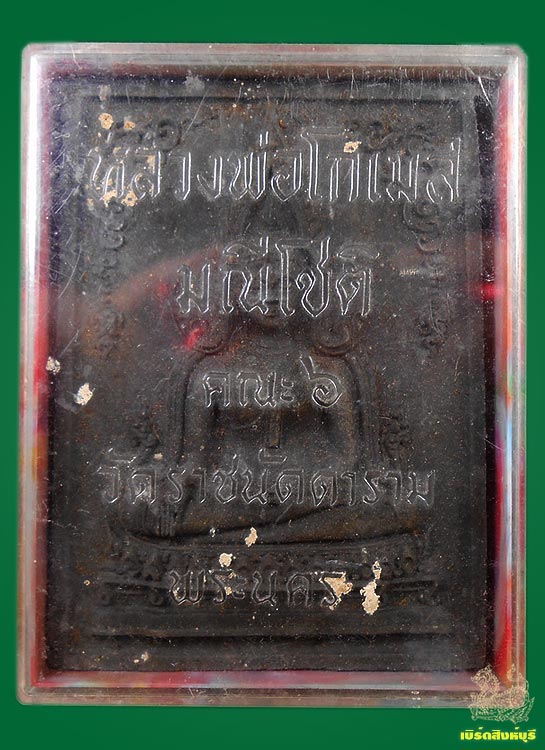 หลวงพ่อโกเมส
มณีโชติ
คณะ ๖
วัดราชนัดดาราม
พระนคร
เบิร์ดสิงห์บุรี